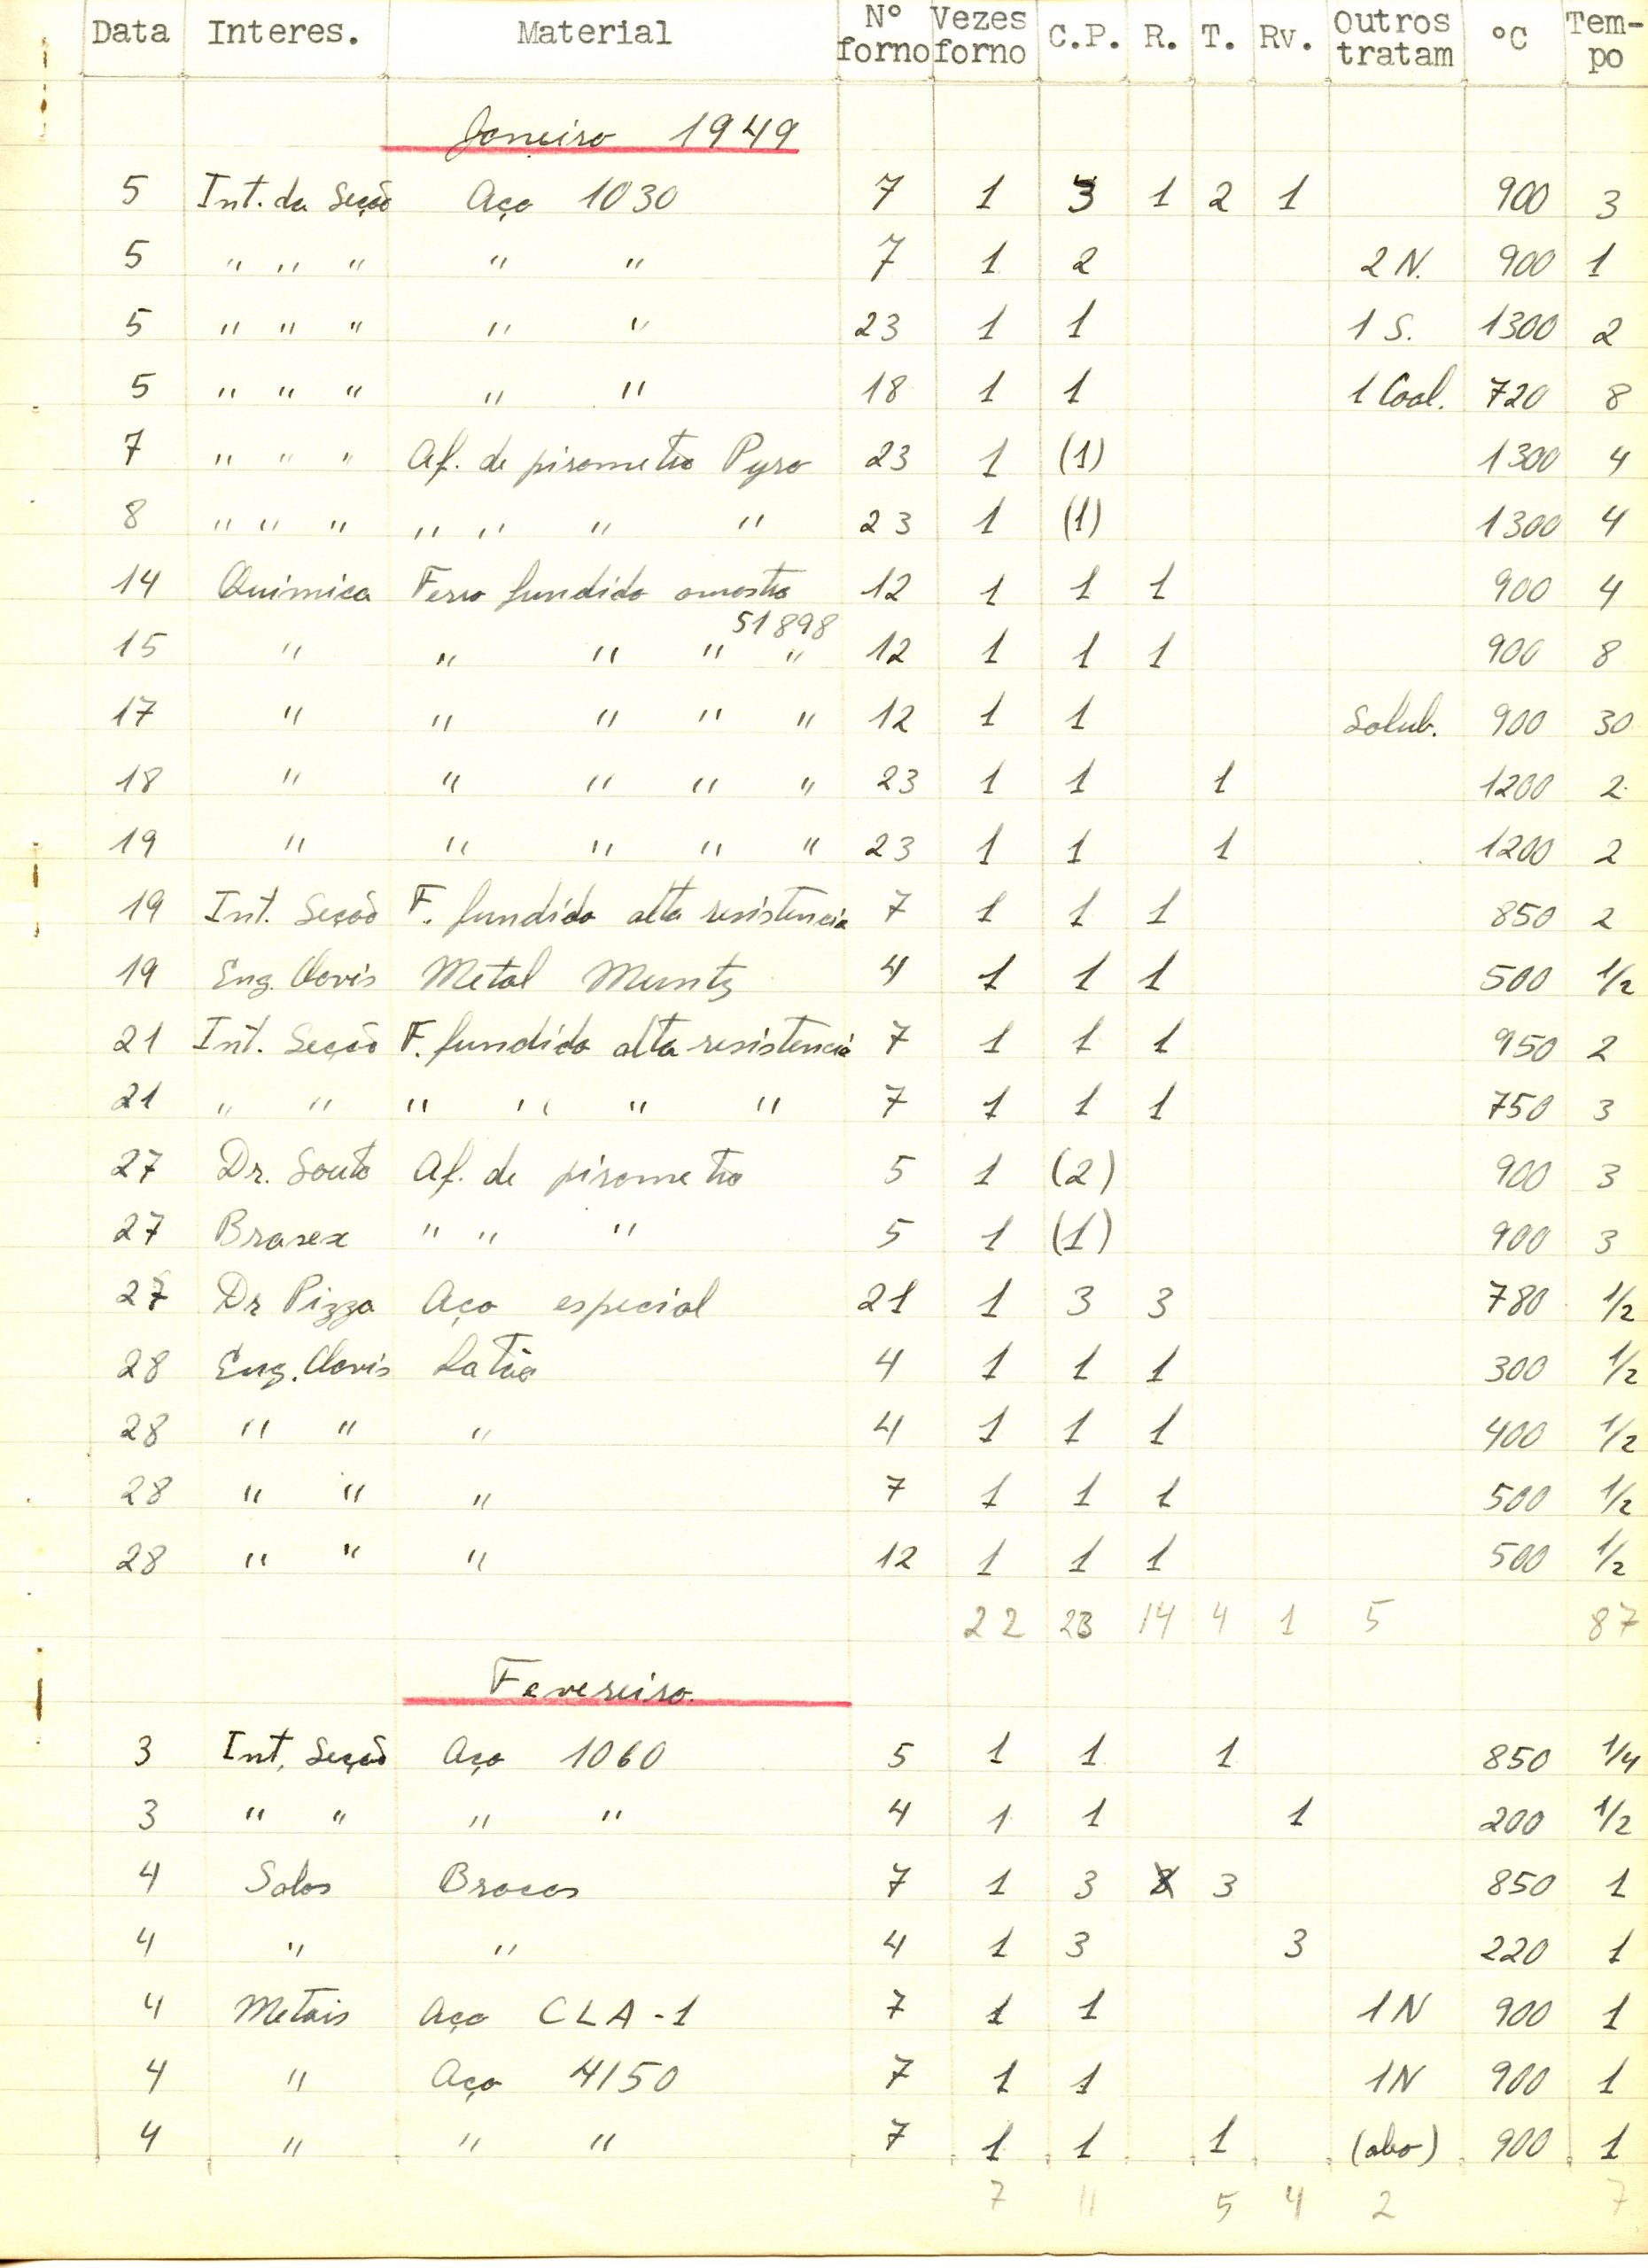 Data Interes. Material Nº forno Vezes forno C.P. R. T. Rv. Outros tratam ºC Tem-po
Janeiro 1949
5 Int. da Seção Aço 1030 7 1 3 1 2 1 900 3
5 " " " " " 7 1 2 2 N. 900 1
5 " " " " " 23 1 1 1 S. 1300 2
5 " " " " " 18 1 1 1 Coal. 720 8
7 " " " Af. de pirometro Pyro 23 1 (1) 1300 4
8 " " " " " " " 23 1 (1) 1300 4
14 Quimica Ferro fundido amostra 12 1 1 1 900 4
51898
15 " " " " " 12 1 1 1 900 8
17 " " " " " 12 1 1 Solub. 900 30
18 " " " " " 23 1 1 1 1200 2
19 " " " " " 23 1 1 1 1200 2
19 Int. Seção F. fundido alta resistencia 7 1 1 1 850 2
19 Eng. Clovis Metal Muntz 4 1 1 1 500 1/2
21 Int. Seção F. fundido alta resistencia 7 1 1 1 950 2
21 " " " " " " 7 1 1 1 750 3
27 Dr. Souto Af. de pirometro 5 1 (2) 900 3
27 Brasex " " " 5 1 (1) 900 3
27 Dr Pizza Aço especial 21 1 3 3 780 1/2
28 Eng. Clovis Latão 4 1 1 1 300 1/2
28 " " " 4 1 1 1 400 1/2
28 " " " 7 1 1 1 500 1/2
28 " " " 12 1 1 1 500 1/2
22 23 14 4 1 5 87
Fevereiro.
3 Int. Seção Aço 1060 5 1 1 1 850 1/4
3 " " " " 4 1 1 1 200 1/2
4 Solos Brocas 7 1 3 3 850 1
4 " " 4 1 3 3 220 1
4 Metais Aço CLA-1 7 1 1 1 N 900 1
4 " Aço 4150 7 1 1 1 N 900 1
4 " " " 7 1 1 1 900 1
7 11 5 4 2 7